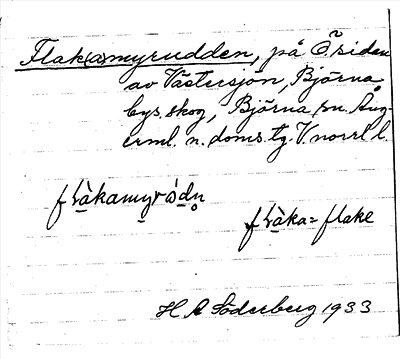 Flak(a)myrudden, på Ö. sidan
av Västersjön, Björna
bys skog, Björna sn. Ång-
erml. n. doms. tg. V. norrl l.
flàkamyrúdn̥
flàka = flake
H A Söderberg 1933